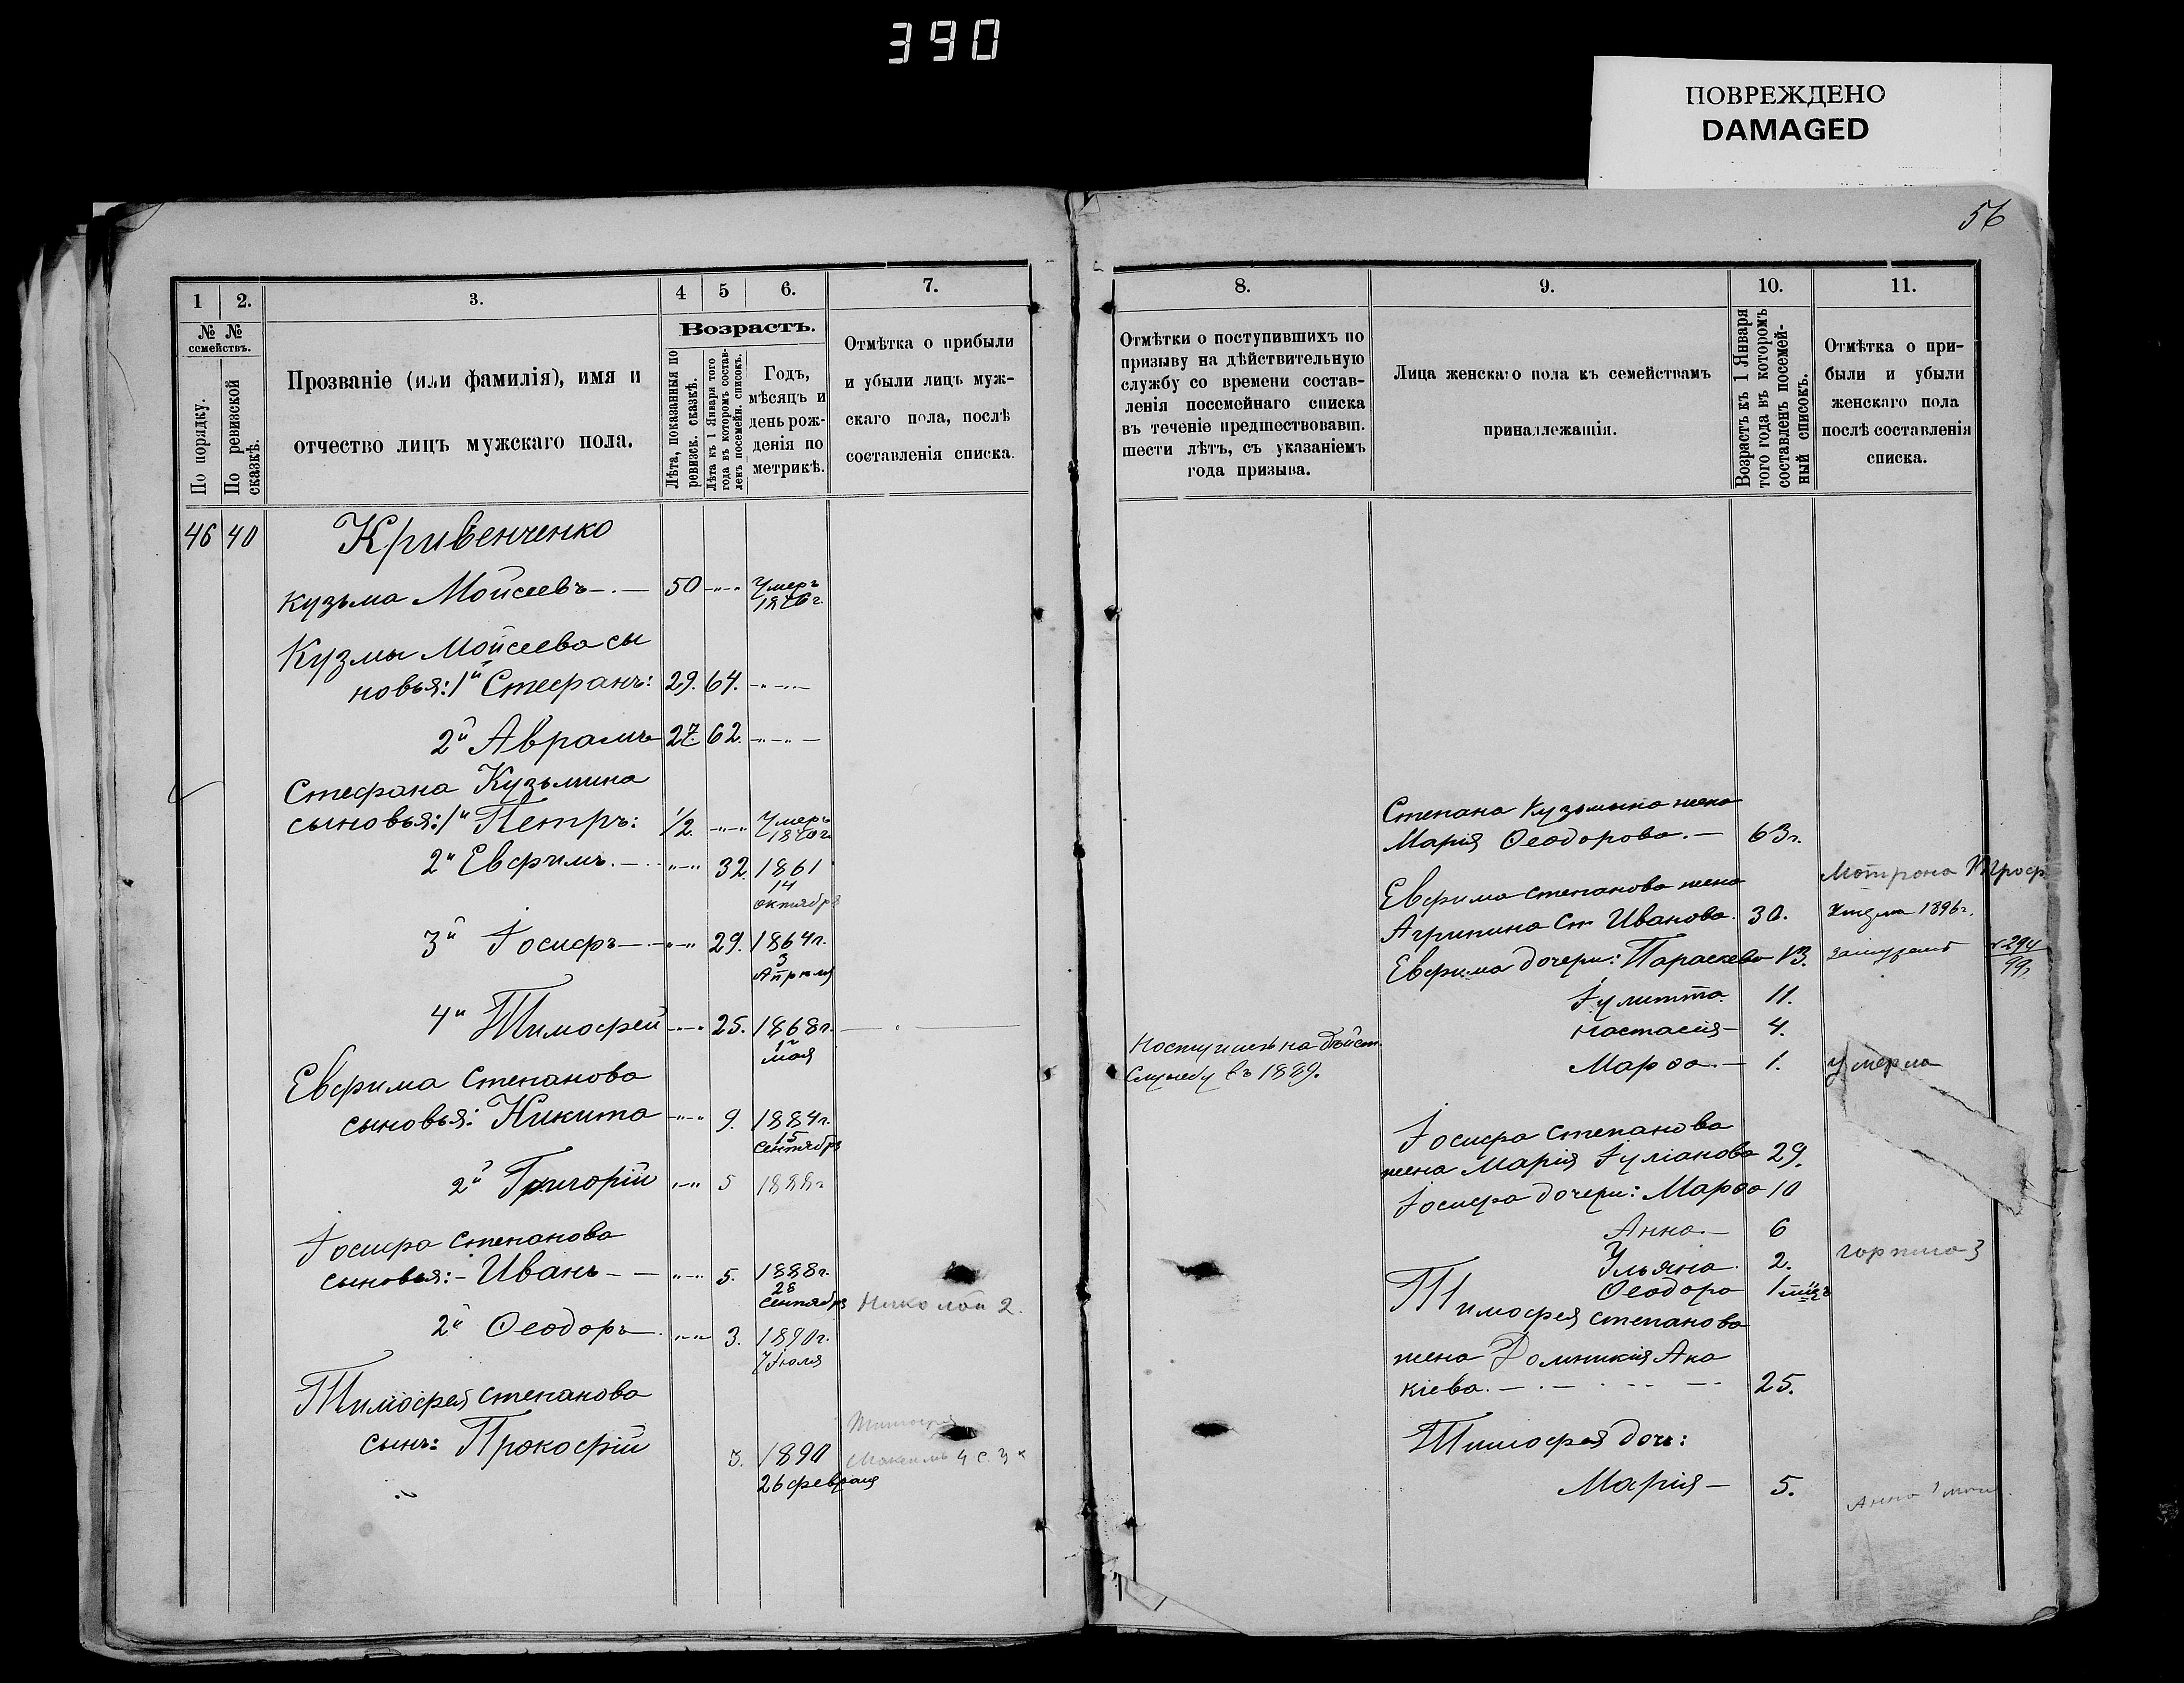 390
ПОВРЕЖДЕНО
DAMAGED
56
1 2. 3. 4 5 6. 7.
№ № семействъ.
По порядку.
По ревизской сказкѣ.
Прозваніе (или фамилія), имя и
отчество лицъ мужскаго пола.
Возрастъ.
Лѣта, показанныя по ревизск. сказкѣ.
Лѣта къ 1 Января того года въ которомъ составленъ посемейн. списокъ.
Годъ,
мѣсяцъ и
день рож-
денія по
метрикѣ.
Отмѣтка о прибыли
и убыли лицъ муж-
скаго пола, послѣ
составленія списка.
46 40 Кривенченко
Кузьма Мойсеевъ 50 Умеръ
Кузмы Мойсеева сы
новья: 1й Стефанъ: 29. 64.
2й Аврамъ 27. 62.
Стефана Кузьмина
сыновья: 1й Петръ: 1/2 Умеръ
2й Евфимъ 32. 1861
14
октября
3й Іосифъ 29. 1864г.
3
Апрѣля
4й Тимофей 25. 1868г.
мая
Евфима Степанова
сыновья: Никита 9. 1884г.
15
Сентября
2й Григорій 5 1888г
Іосифа Степанова
сыновья: Иванъ 5. 1888г.
26
Сентября Николай 2.
2й Ѳеодоръ 3. 1890г.
7 Іюля
Тимофея Степанова
сынъ: Прокофій 3. 1890
26 февраля
8. 9. 10. 11.
Отмѣтки о поступившихъ по
призыву на дѣйствительную
службу со времени состав-
ленія посемейнаго списка
въ теченіе предшествовавш.
шести лѣтъ, съ указаніемъ
года призыва.
Лица женскаго пола къ семействамъ
принадлежащія.
Возрастъ къ 1 Января
того года въ которомъ
составленъ посемей-
ный списокъ.
Отмѣтка о при-
были и убыли
женскаго пола
послѣ составленія
списка.
Степана Кузьмина жена
Марія Ѳеодорова. 63г.
Мотрона
Евфима Степанова жена
Агрипина Ст Иванова 30. 1896г.
Евфима дочери: Параскева 13. замужемъ 294
99
Іулитта 11.
Настасія 4.
Поступилъ на дѣйст.
Службу въ 1889.
Марѳа 1. умерла
Іосифа Степанова
жена Марія Іуліанова 29.
Іосифа дочери: Марѳа 10
Анна 6
Ульяна 2. горпина 3
Ѳеодора 1 мѣс
Тимофея Степанова
жена Домникія Ака
кіева. 25.
Тимофея дочь:
Марія 5.
Анна 1